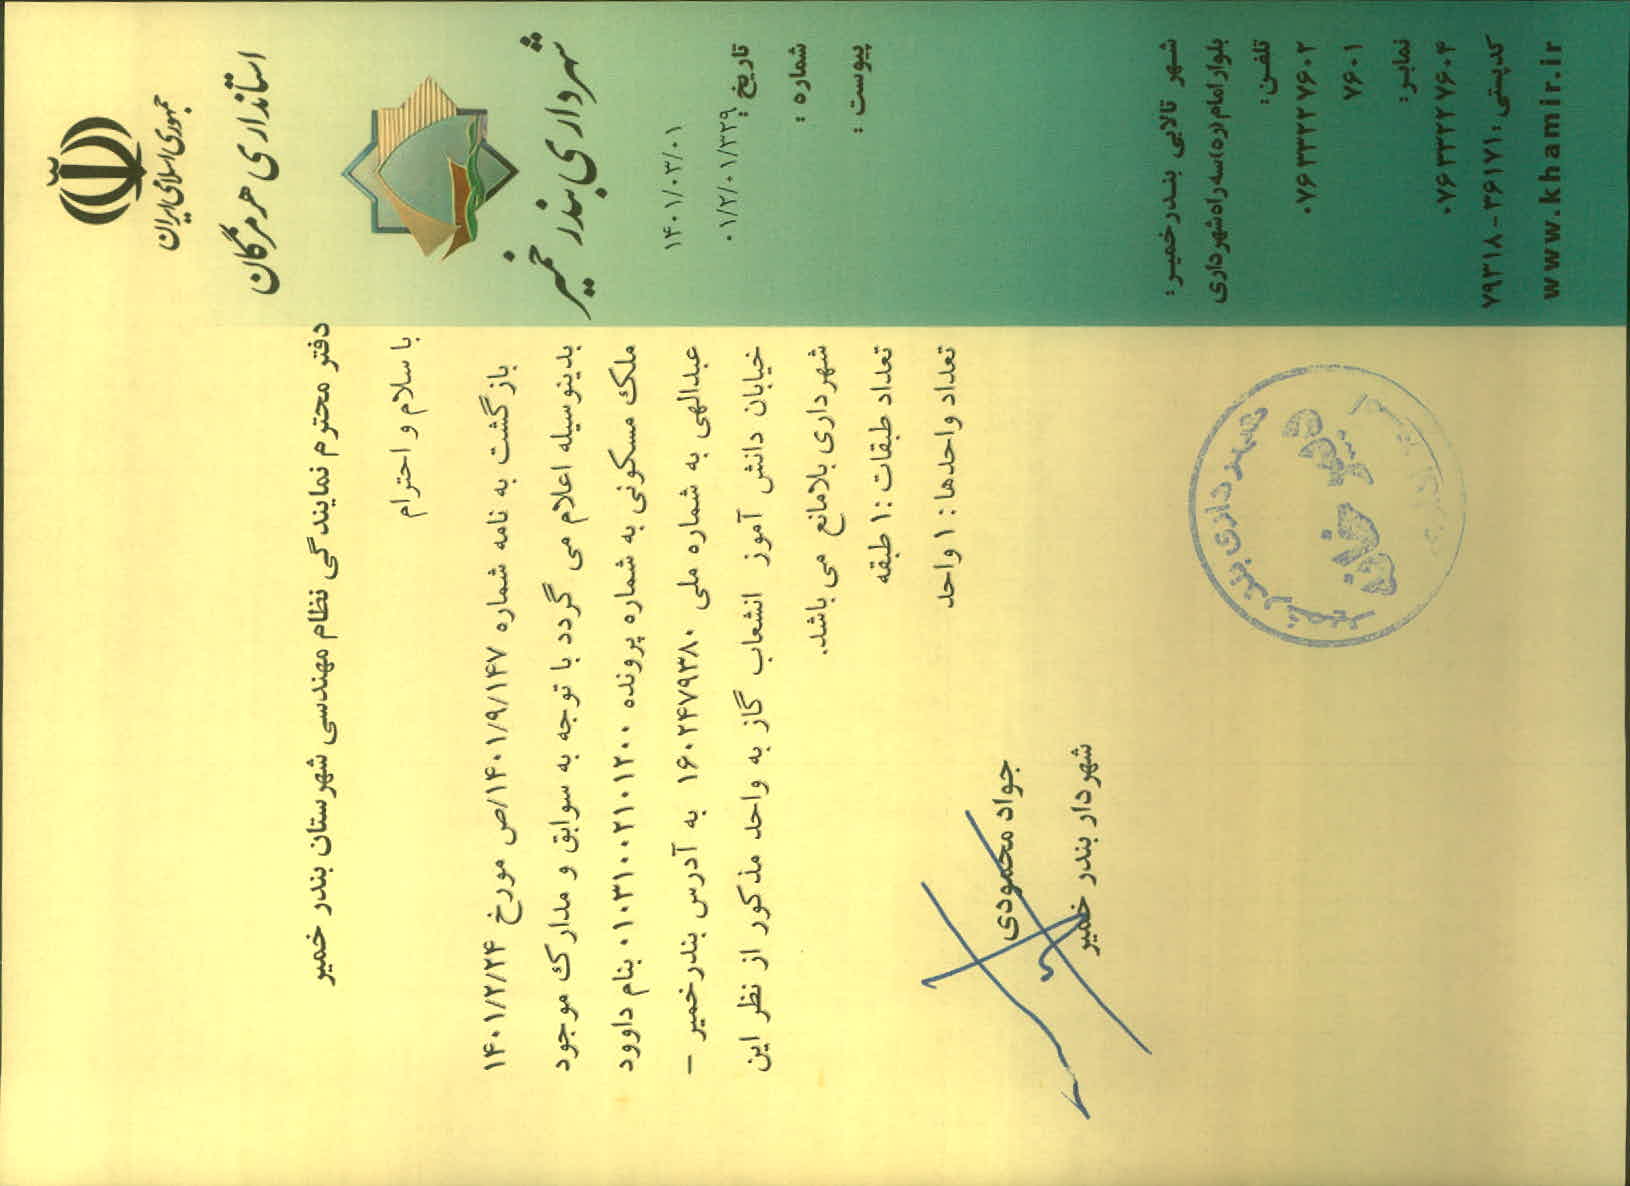 جمهوری اسلامی ایران
استانداری هرمزگان
شهرداری بندر خمیر
۱۴۰۱/۰۳/۰۱
تاریخ:
۰۱/۲/۰۱/۳۲۹
شماره :
پیوست :
دفتر محترم نمایندگی نظام مهندسی شهرستان بندر خمیر
با سلام و احترام
بازگشت به نامه شماره ۱۴۰۱/۹/۱۴۷/ص مورخ ۱۴۰۱/۲/۲۴
بدینوسیله اعلام می گردد با توجه به سوابق و مدارک موجود
ملک مسکونی به شماره پرونده ۰۱۰۳۱۰۰۲۱۰۱۲۰۰ بنام داوود
عبدالهی به شماره ملی ۱۶۰۲۴۷۹۳۸۰ به آدرس بندرخمیر –
خیابان دانش آموز انشعاب گاز به واحد مذکور از نظر این
شهرداری بلامانع می باشد.
تعداد طبقات :۱ طبقه
تعداد واحدها : ۱ واحد
جواد محمودی
شهردار بندر خمیر
شهرداری بندر خمیر
شهر تالابی بندرخمیر :
بلوار امام (ره) سه راه شهرداری
تلفن:
۰۷۶۳۳۲۲۷۶۰۲
۷۶۰۱
نمابر :
۰۷۶۳۳۲۲۷۶۰۴
کدپستی : ۳۶۱۷۱-۷۹۳۱۸
www.khamir.ir